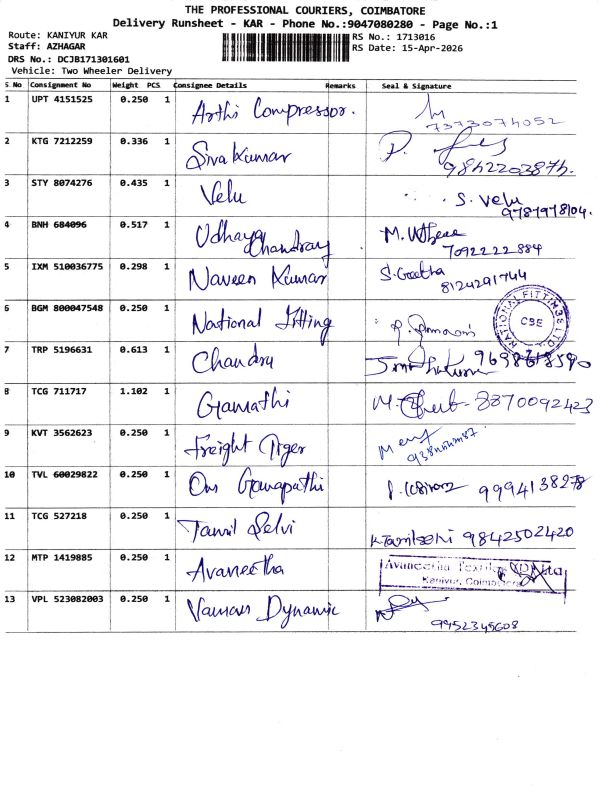 THE PROFESSIONAL COURIERS, COIMBATORE
Delivery Runsheet - KAR - Phone No.:9047080280 - Page No.:1
Route: KANIYUR KAR
RS No.: 1713016
Staff: AZHAGAR
RS Date: 15-Apr-2026
DRS No.: DCJB171301601
Vehicle: Two Wheeler Delivery
S No Consignment No Weight PCS Consignee Details Remarks Seal & Signature
1 UPT 4151525 0.250 1 Arthi Compressor. 7373074052
2 KTG 7212259 0.336 1 Siva Kumar 9842203874.
3 STY 8074276 0.435 1 Velu S. Velu
9787978104.
4 BNH 684096 0.517 1 Udhaya Chandran M.
7092222884
5 IXM 510036775 0.298 1 Naveen Kumar S. Geetha
8124291744
6 BGM 800047548 0.250 1 National Fitting
NATIONAL FITTINGS LTD
CBE
7 TRP 5196631 0.613 1 Chandru
8 TCG 711717 1.102 1 Gamathi M. 8870092423
9 KVT 3562623 0.250 1 Freight Tiger
10 TVL 60029822 0.250 1 Om Ganapathi 9994138278
11 TCG 527218 0.250 1 Tamil Selvi K Tamilselvi 9842502420
12 MTP 1419885 0.250 1 Avaneetha
Avaneetha Textiles (P) Ltd
Kaniyur, Coimbatore
13 VPL 523082003 0.250 1 Vamaus Dynamic
9952345608